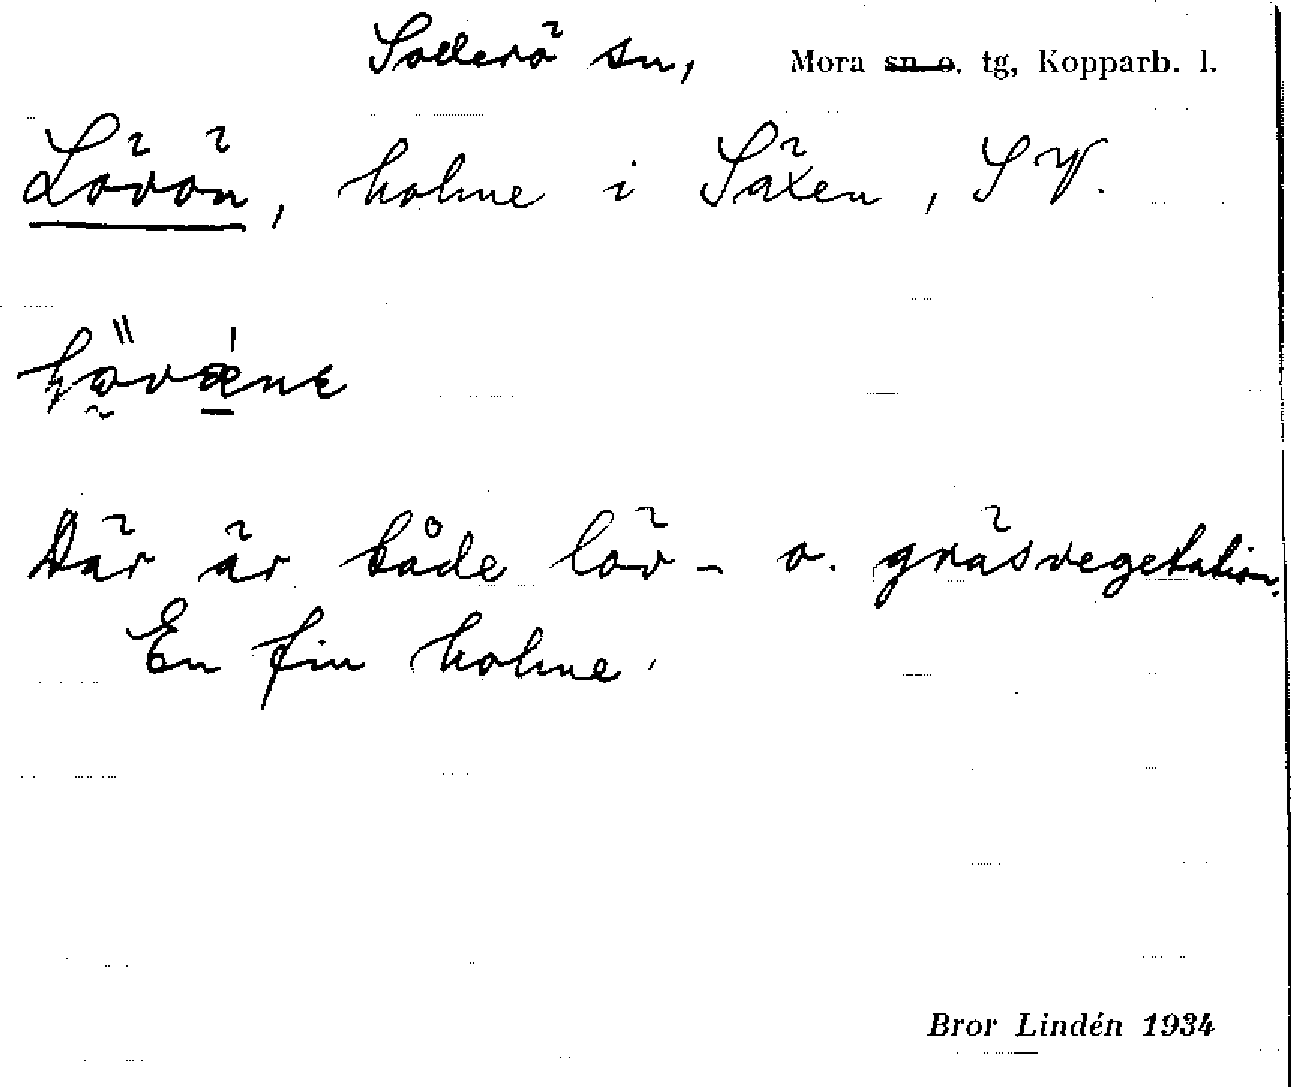 Sollerö sn, Mora sn o. tg, Kopparb. l.
Lövön, holme i Säxen, S V.
Där är både löv- o. gräsvegetation.
En fin holme.
Bror Lindén 1934